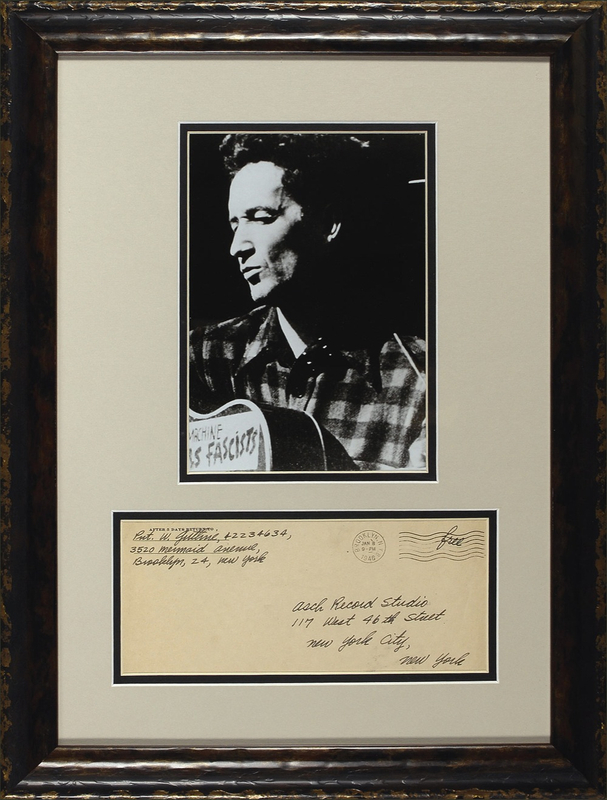 MACHINE
LS FASCISTS
AFTER 5 DAYS RETURN TO
Pvt. W. Guthrie, 42234634,
3520 mermaid avenue,
Brooklyn, 24, new york
BROOKLYN N.Y.
JAN 8
PM
1946
free
asch Record Studio
117 West 46th Street
new york City,
new york